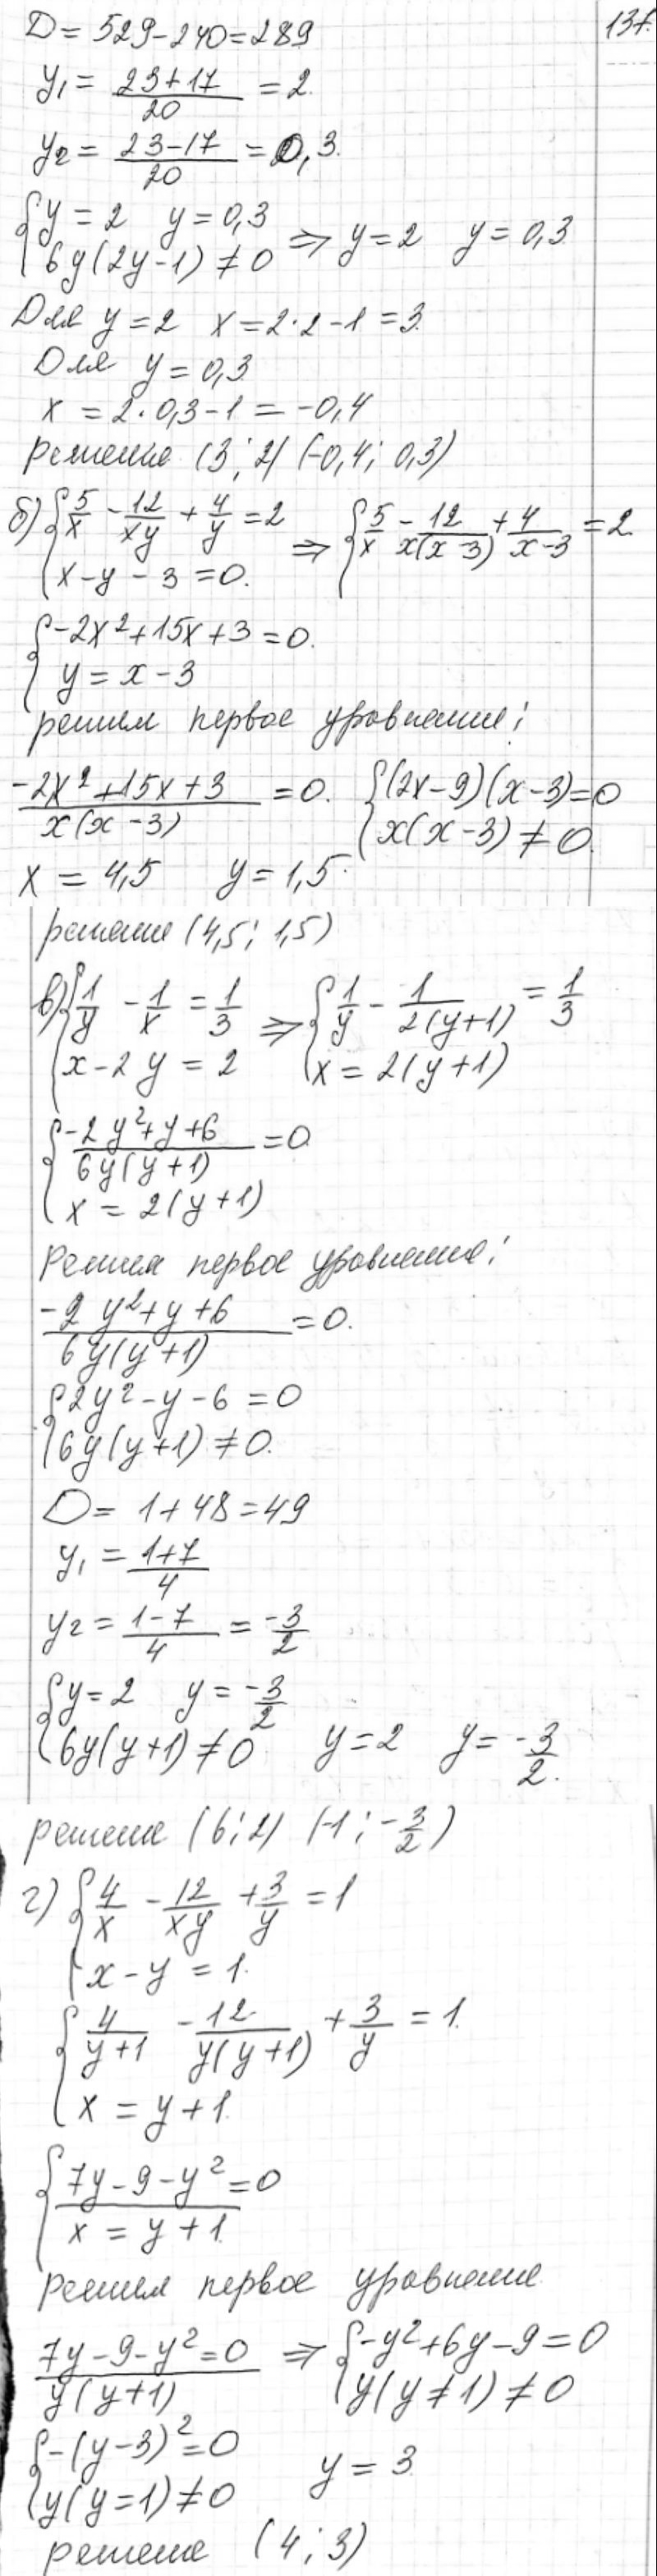 137.
D = 529-240=289
y₁ = (23+17)/20 = 2.
y₂ = (23-17)/20 = 0,3.
{y = 2 y = 0,3
{6y(2y-1) ≠ 0 ⇒ y = 2 y = 0,3
Для y = 2 x = 2·2-1 = 3.
Для y = 0,3
x = 2·0,3-1 = -0,4
решение (3; 2) (-0,4; 0,3)
б) {5/x - 12/xy + 4/y = 2 ⇒ {5/x - 12/x(x-3) + 4/x-3 = 2.
{x-y-3 = 0.
{-2x²+15x+3 = 0.
{y = x-3
решим первое уравнение:
(-2x²+15x+3)/x(x-3) = 0. {(2x-9)(x-3)=0
{x(x-3) ≠ 0.
x = 4,5 y = 1,5.
решение (4,5; 1,5)
в) {1/y - 1/x = 1/3 ⇒ {1/y - 1/2(y+1) = 1/3
{x-2y = 2 {x = 2(y+1)
{(-2y²+y+6)/6y(y+1) = 0
{x = 2(y+1)
Решим первое уравнение:
(-2y²+y+6)/6y(y+1) = 0.
{2y²-y-6 = 0
{6y(y+1) ≠ 0.
D = 1+48 = 49
y₁ = (1+7)/4
y₂ = (1-7)/4 = -3/2
{y = 2 y = -3/2
{6y(y+1) ≠ 0 y = 2 y = -3/2.
решение (6; 2) (-1; -3/2)
г) {4/x - 12/xy + 3/y = 1
{x-y = 1.
{4/y+1 - 12/y(y+1) + 3/y = 1.
{x = y+1.
{7y-9-y² = 0
{x = y+1.
Решим первое уравнение.
7y-9-y² = 0/y(y+1) ⇒ {-y²+6y-9 = 0
{y(y≠1) ≠ 0
{-(y-3)² = 0
{y(y=1) ≠ 0 y = 3.
решение (4; 3)